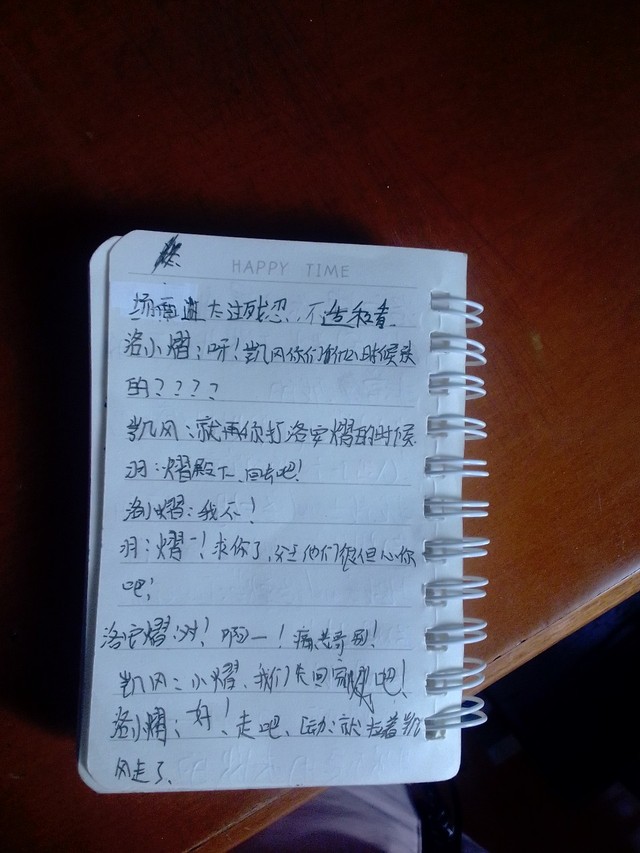 HAPPY TIME
场面血太过残忍、不适和看
洛小熠：呀！凯风你们什么时候来
的？？？？
凯风：就再你打洛安熠的时候
羽：熠殿下、回去吧！
洛小熠：我不！
羽：熠一！求你了，他们很但心你
吧！
洛安熠：对！啊一！痛
凯风：小熠、我们先回家吧！
洛小熠：好！走吧、就拉着凯
风走了、